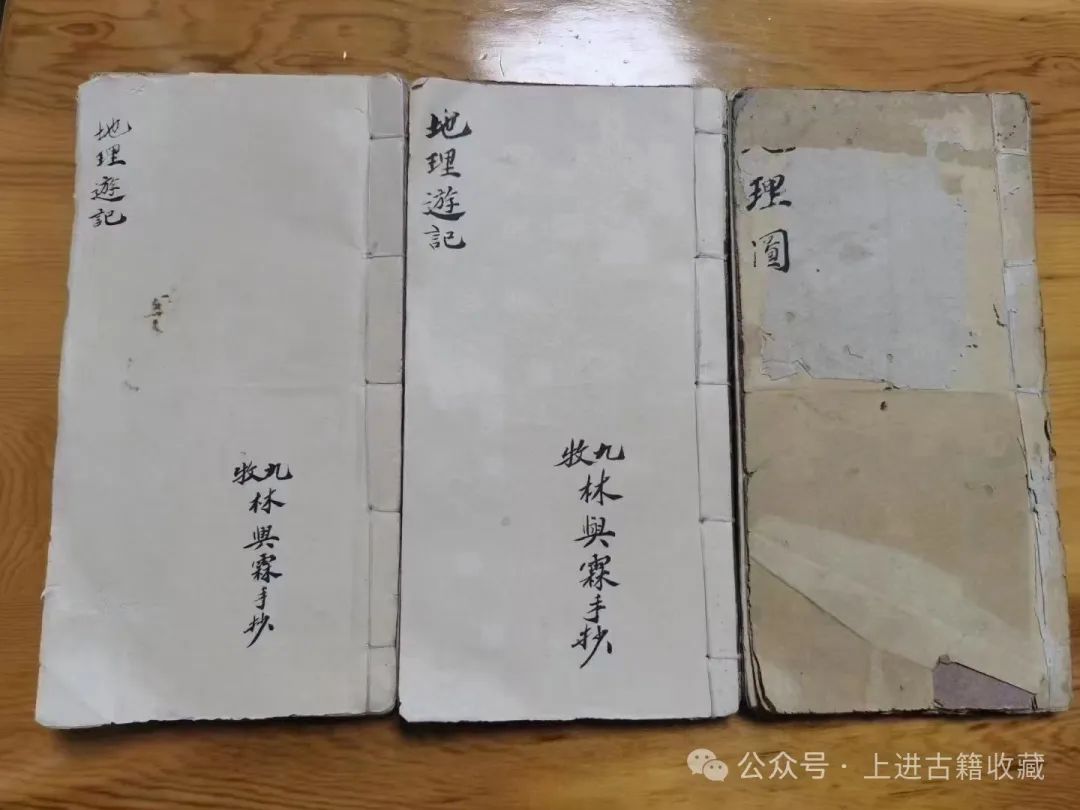 地理遊記
九牧林興霖手抄
地理遊記
九牧林興霖手抄
理圖
公众号 · 上进古籍收藏